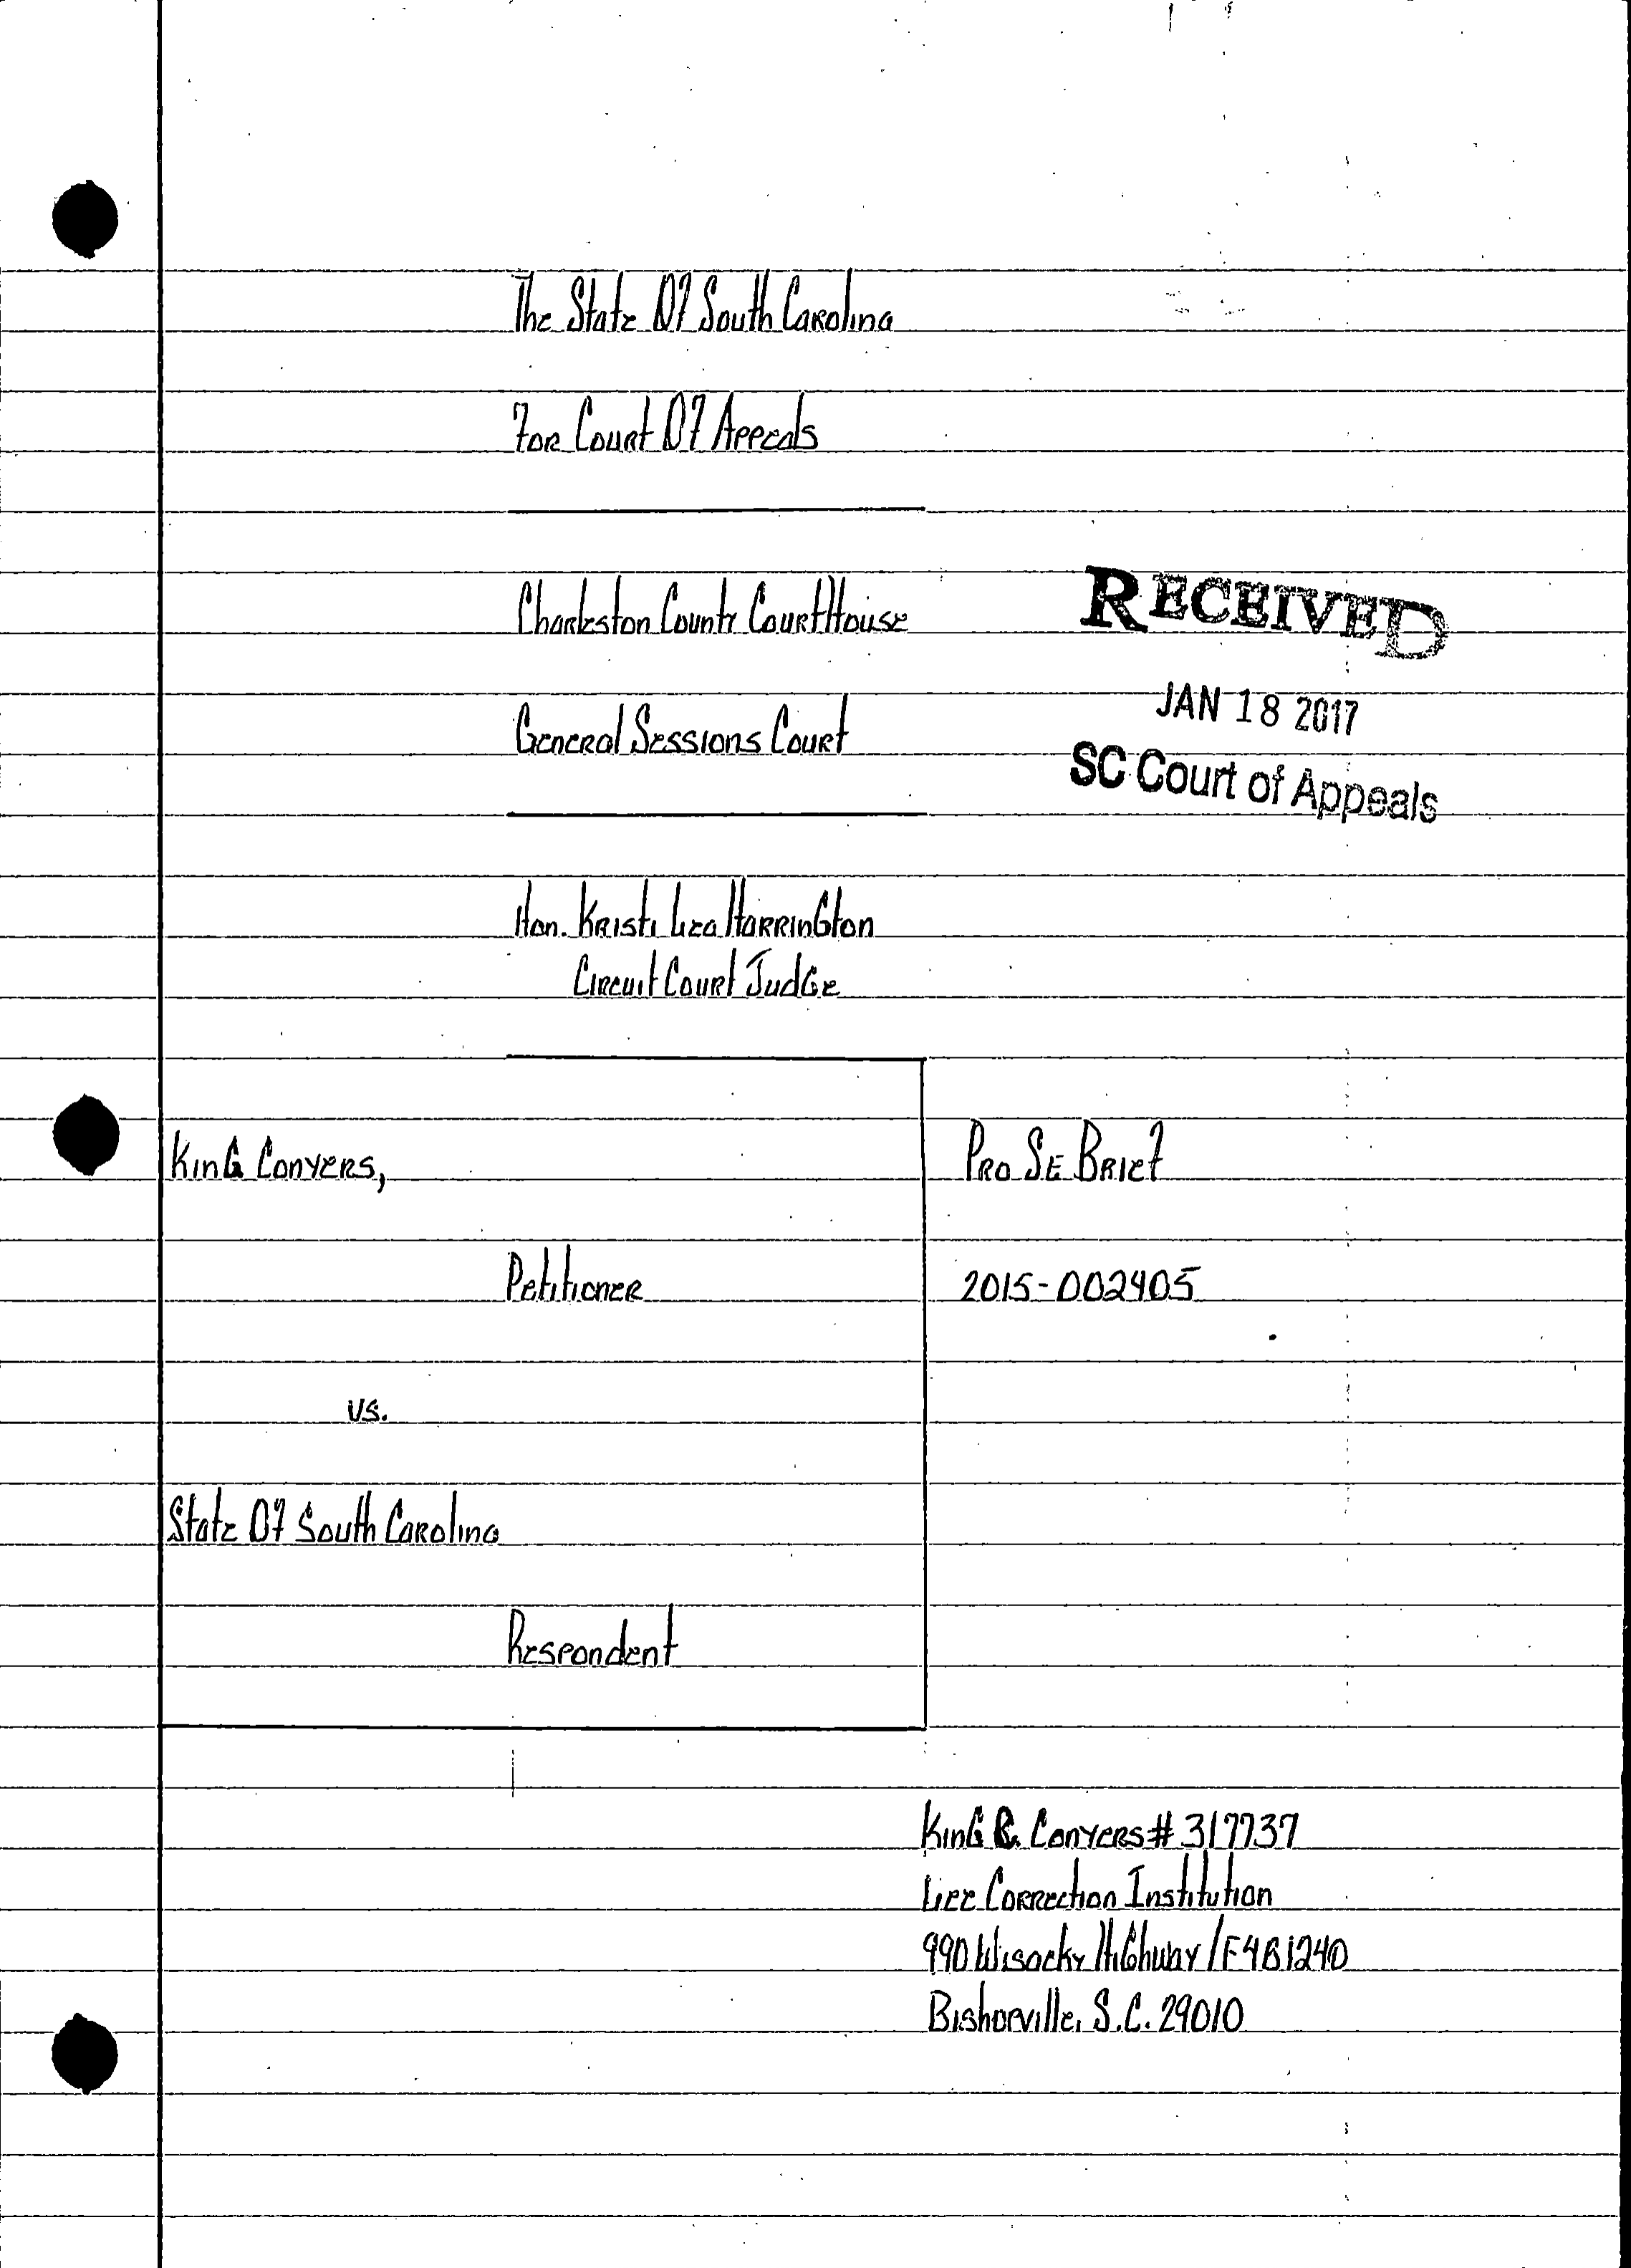 The State Of South Carolina
For Court Of Appeals
Charleston County CourtHouse
RECEIVED
General Sessions Court
JAN 18 2017
SC Court of Appeals
Hon. Kristi Lea Harrington
Circuit Court Judge
King Conyers,
Pro Se Brief
Petitioner
2015-002405
vs.
State Of South Carolina
Respondent
King R. Conyers # 317737
Lee Correction Institution
990 Wisacky Highway / F4B1240
Bishopville, S.C. 29010